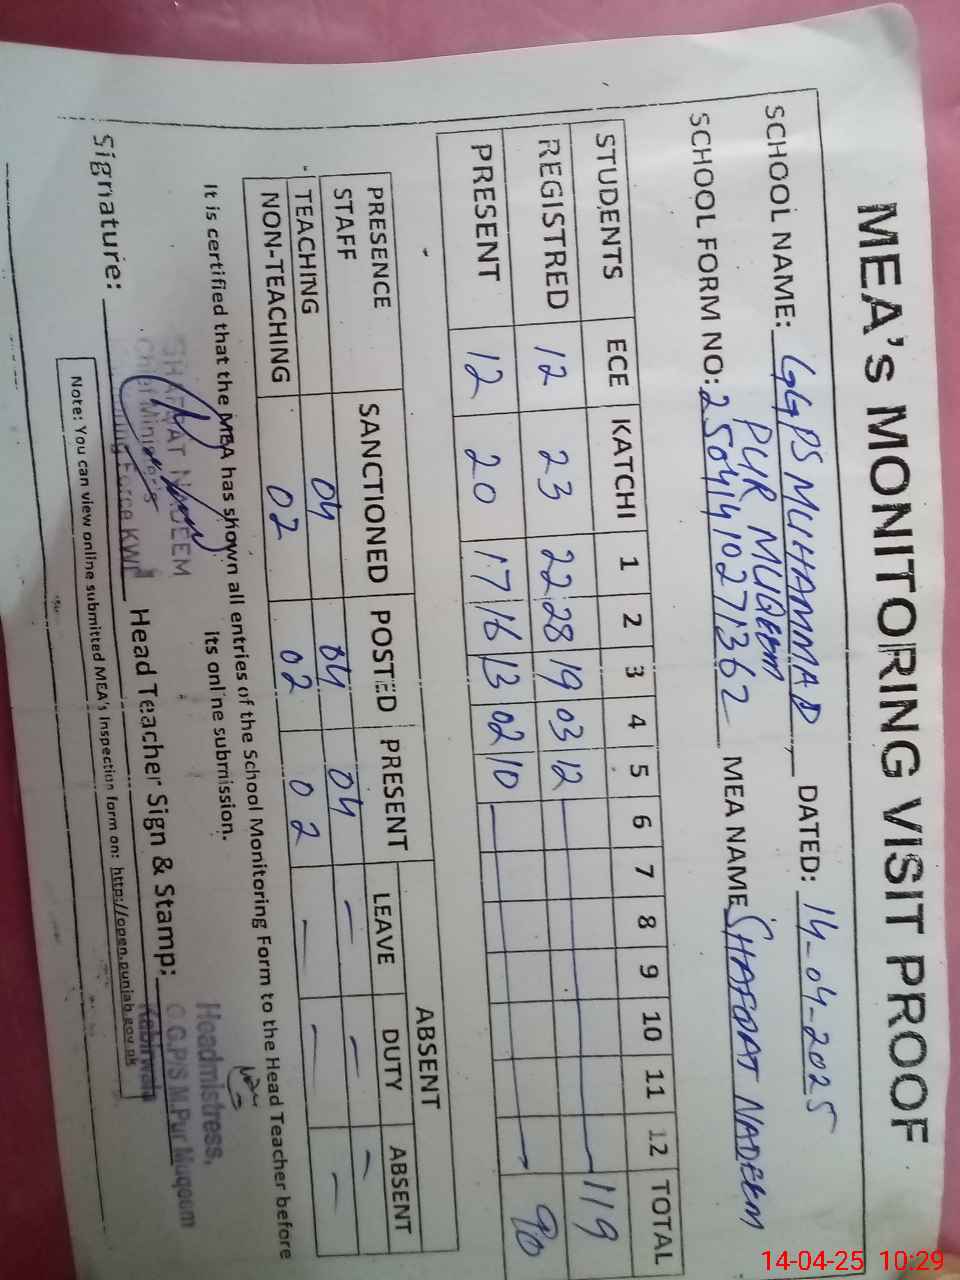 MEA's MONITORING VISIT PROOF
SCHOOL NAME: GGPS MUHAMMAD DATED: 14-04-2025
PUR MUQEEM
SCHOOL FORM NO: 25041410271362 MEA NAME SHAFQAT NADEEM
STUDENTS ECE KATCHI 1 2 3 4 5 6 7 8 9 10 11 12 TOTAL
REGISTRED 12 23 22 28 19 03 12 119
PRESENT 12 20 17 16 13 02 10 90
PRESENCE STAFF SANCTIONED POSTED PRESENT ABSENT
LEAVE DUTY ABSENT
TEACHING 04 04 04 — — —
NON-TEACHING 02 02 02 — — —
It is certified that the MEA has shown all entries of the School Monitoring Form to the Head Teacher before
its online submission.
SHAFQAT NADEEM
Chief Minister's
Monitoring Force KWL
Signature: Head Teacher Sign & Stamp:
Headmistress,
G.G.P/S M.Pur Muqeem
Kabirwala
Note: You can view online submitted MEA's Inspection form on: http://open.punjab.gov.pk
14-04-25 10:29